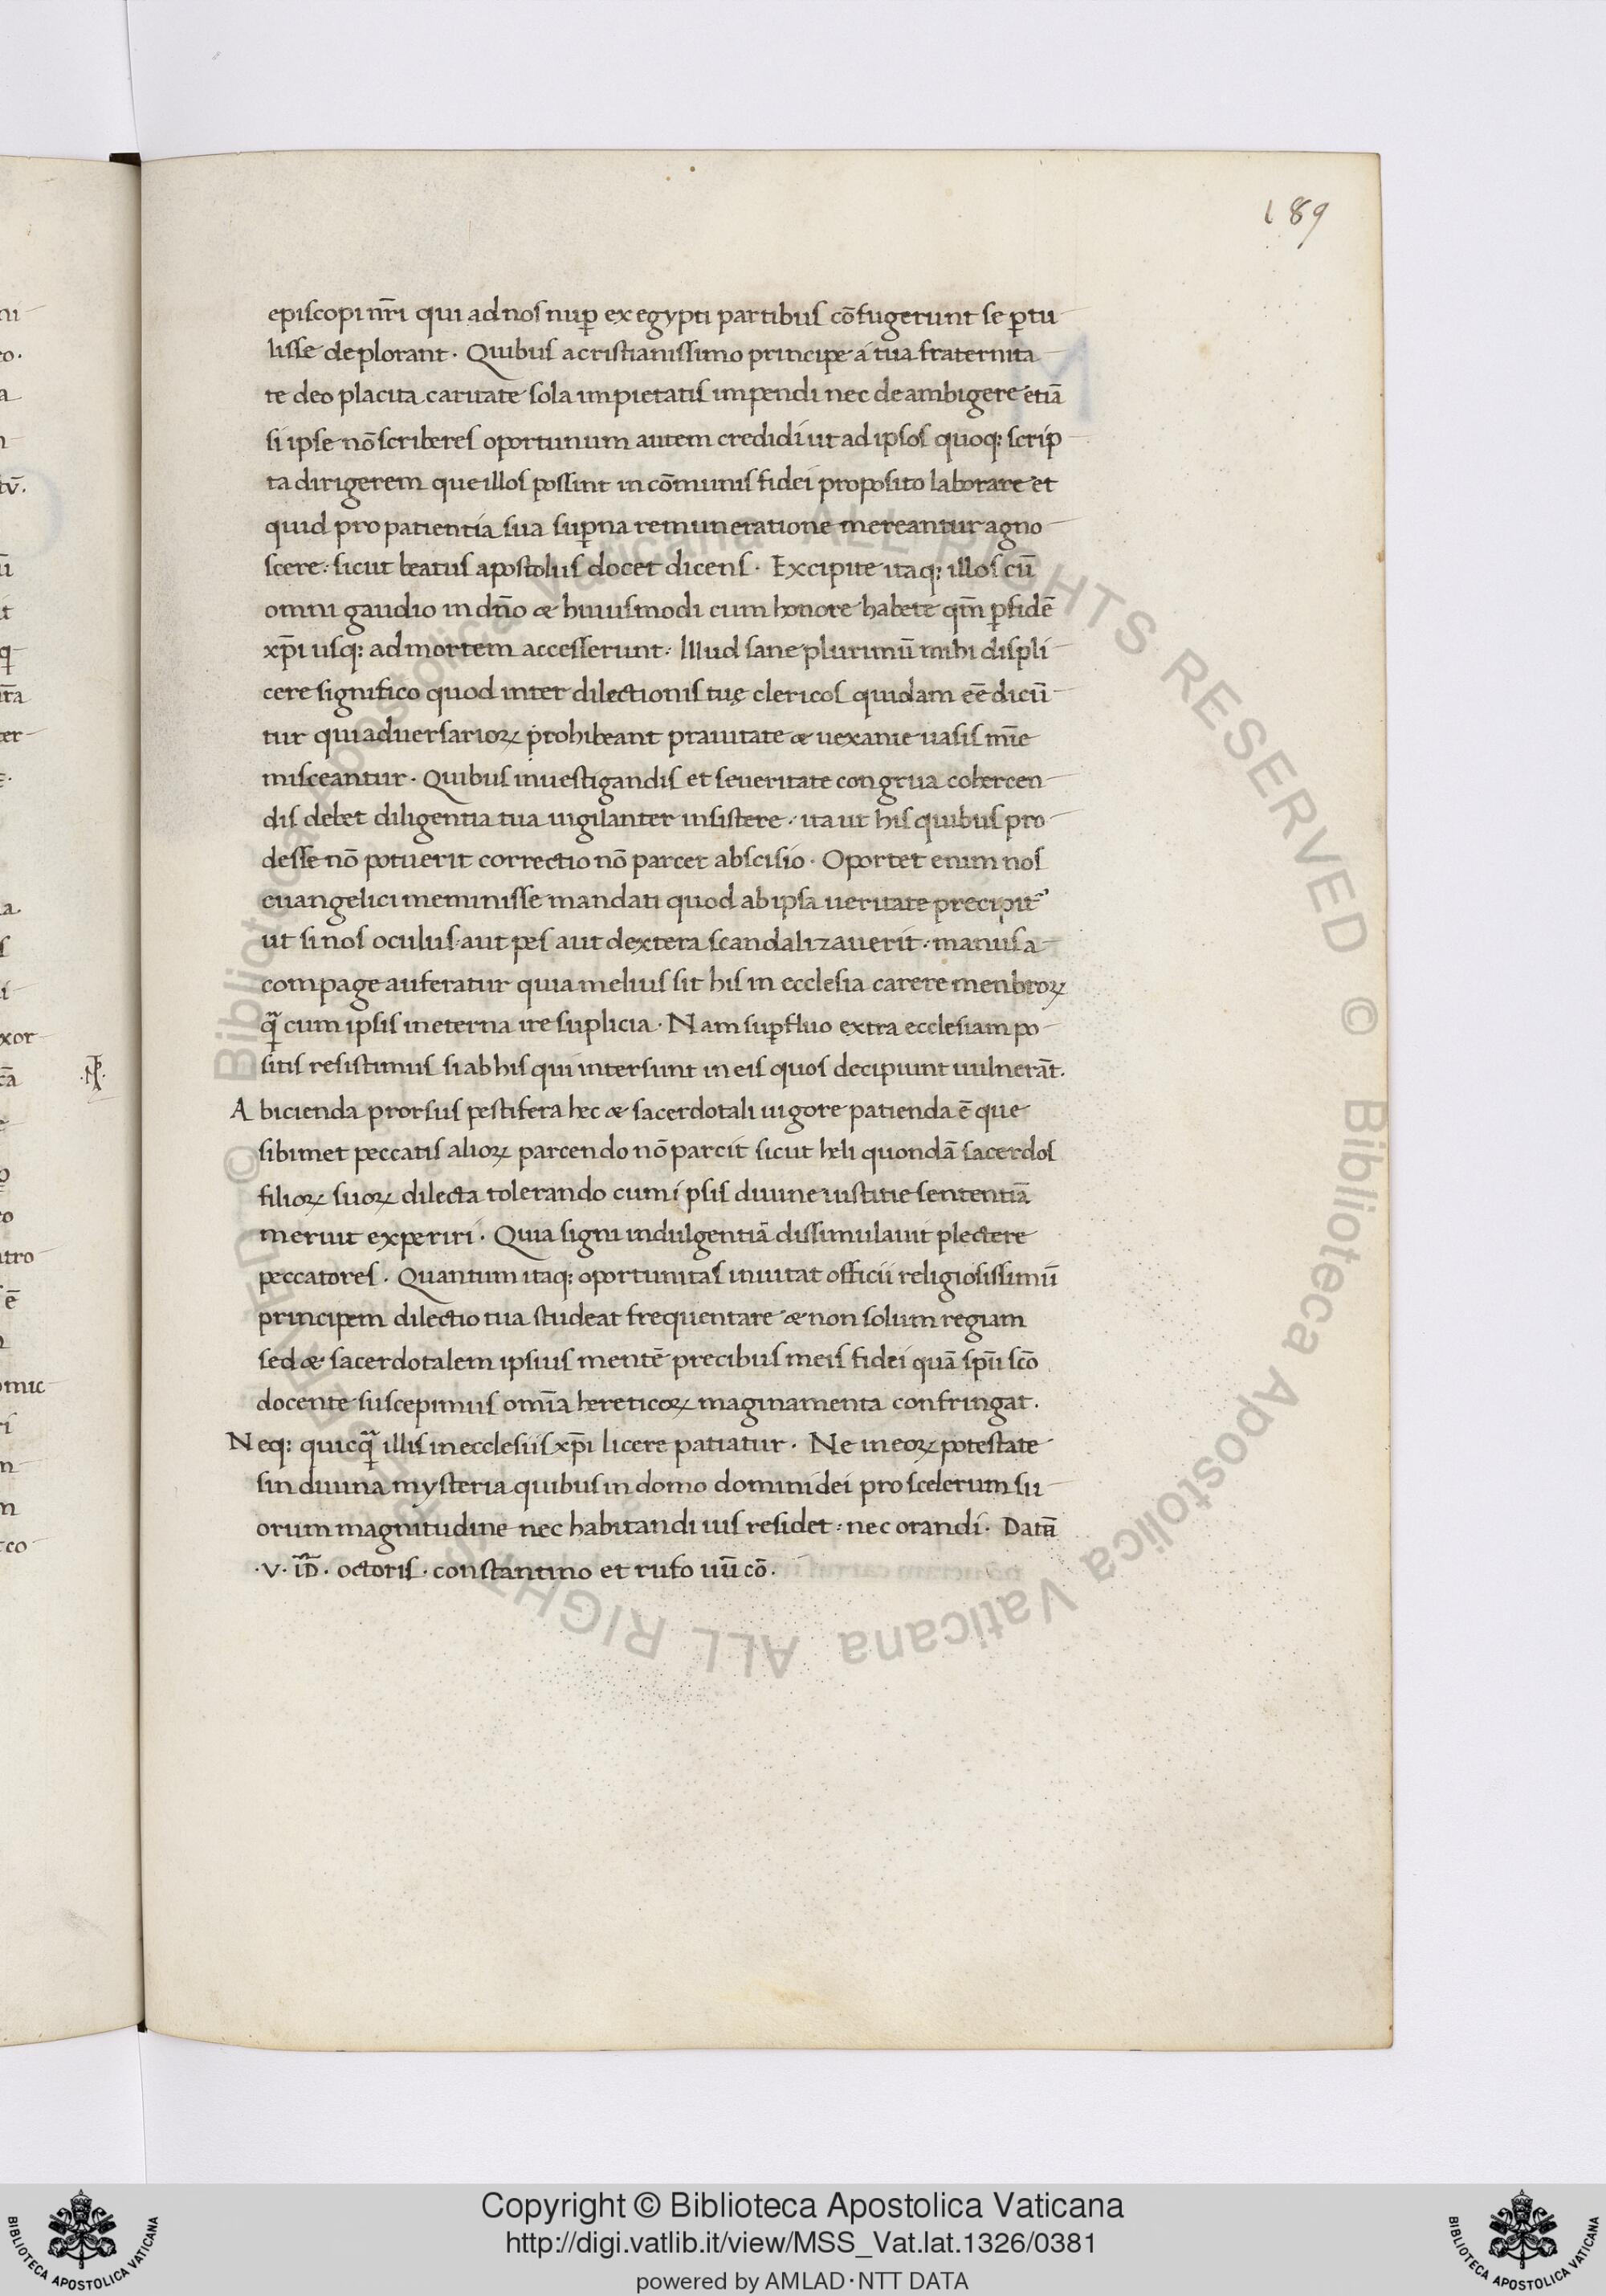 189
episcopi nr̄i qui ad nos nuꝑ ex egypti partibus cōfugerunt se ꝑtu
lisse deplorant. Quibus a cristianissimo principe a tua fraternita
te deo placita caritate sola inpietatis inpendi nec de ambigere etiā
si ipse nō scriberes oportunum autem credidi ut ad ipsos quoq: scrip
ta dirigerem que illos possint in cōmunis fidei proposito laborare et
quid pro patientia sua suꝑna remuneratione mereantur agno
scere: sicut beatus apostolus docet dicens. Excipite itaq: illos cū
omni gaudio in dn̄o æ huiusmodi cum honore habete qm̄ ꝑ fidē
xp̄i usq: ad mortem accesserunt. Illud sane plurimū mihi displi
cere significo quod inter dilectionis tuę clericos quidam eē dicū
tur qui adversarioꝝ prohibeant pravitate æ vexanie uasis mīe
misceantur. Quibus investigandis et severitate congrua cohercen
dis debet diligentia tua vigilanter insistere. ita ut his quibus pro
desse nō potuerit correctio nō parcet abscisio. Oportet enim nos
euangelici meminisse mandati quod ab ipsa veritate precipit̄
ut si nos oculus aut pes aut dextera scandalizaverit. manus a
compage auferatur quia melius sit his in ecclesia carere menbroꝝ
qͣ̄ cum ipsis in eterna ire suplicia. Nam suꝑfluo extra ecclesiam po
sitis resistimus si ab his qui intersunt in eis quos decipiunt vulnerāt.
A bicienda prorsus pestifera hec æ sacerdotali vigore patienda ē que
sibimet peccatis alioꝝ parcendo nō parcit sicut heli quondā sacerdos
filioꝝ suoꝝ dilecta tolerando cum ipsis divine iustitie sententiā
meruit experiri. Quia signi indulgentiā dissimulavit plectere
peccatores. Quantum itaq: oportunitas invitat officii religiosissimū
principem dilectio tua studeat frequentare æ non solum regiam
sed æ sacerdotalem ipsius mentē precibus meis fidei quā spū scō
docente suscepimus om̄ia hereticoꝝ maginamenta confringat.
N eq: quicqͣ̄ illis in ecclesiis xp̄i licere patiatur. Ne in eoꝝ potestate
sin divina mysteria quibus in domo domini dei pro scelerum su
orum magnitudine nec habitandi ius residet: nec orandi. Datā
.v. id̄. octoris. constantino et rufo uū cō.
Copyright © Biblioteca Apostolica Vaticana
http://digi.vatlib.it/view/MSS_Vat.lat.1326/0381
powered by AMLAD·NTT DATA
BIBLIOTECA APOSTOLICA VATICANA
BIBLIOTECA APOSTOLICA VATICANA
© Biblioteca Apostolica Vaticana ALL RIGHTS RESERVED © Biblioteca Apostolica Vaticana ALL RIGHTS RESERVED